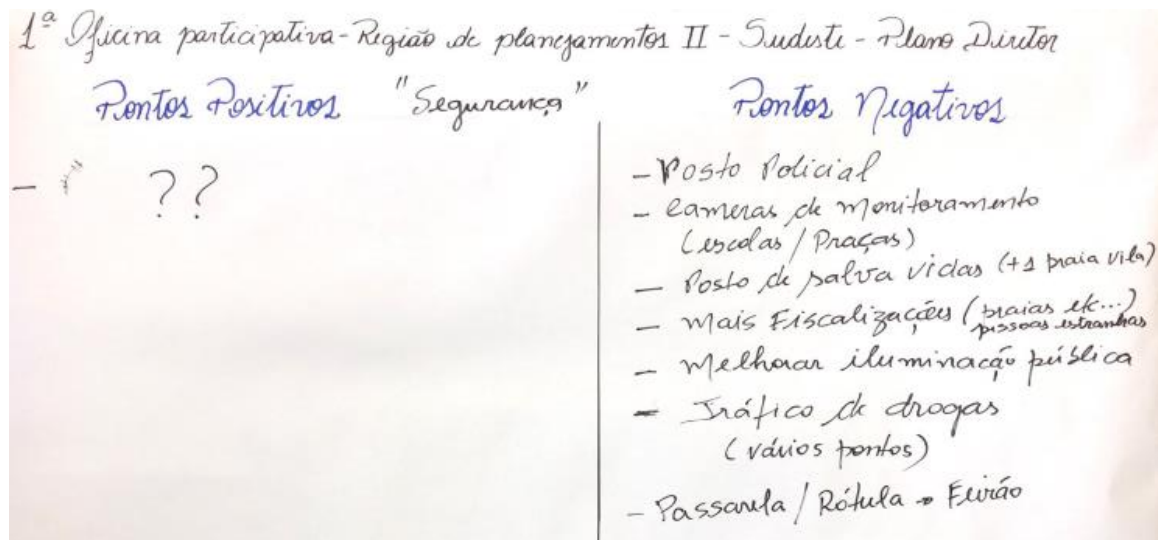 1ª Oficina participativa - Região de planejamentos II - Sudeste - Plano Diretor
Pontos Positivos "Segurança" Pontos Negativos
- ??
- Posto Policial
- Cameras de monitoramento
(escolas / Praças)
- Posto de salva vidas (+1 praia vila)
- Mais Fiscalizações (praias etc...)
pessoas estranhas
- Melhorar iluminação pública
- Tráfico de drogas
(vários pontos)
- Passarela / Rótula → Feirão